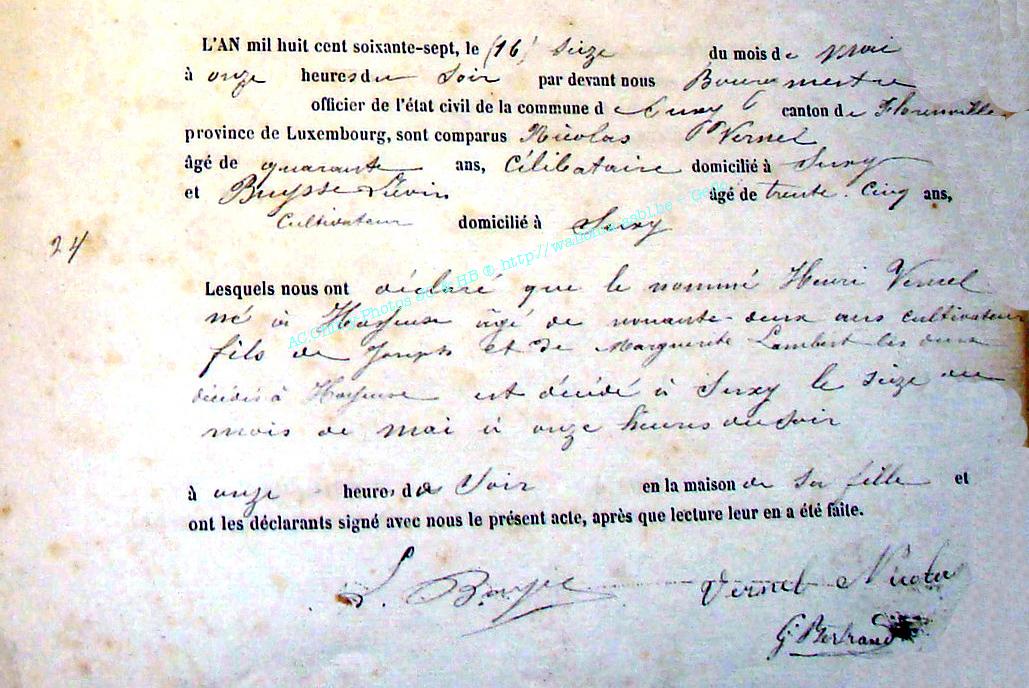 L'AN mil huit cent soixante-sept, le (16) Seize du mois de Mai
à onze heures du Soir par devant nous Bourgmestre
officier de l'état civil de la commune de Suxy canton de Florenville
province de Luxembourg, sont comparus Nicolas Vernel
âgé de quarante ans, Célibataire domicilié à Suxy
et Buysse Liévin âgé de trente-Cinq ans,
Cultivateur domicilié à Suxy
24
Lesquels nous ont déclaré que le nommé Henri Vernel
né à âgé de nonante-deux ans cultivateur
fils de Joseph et de Marguerite Lambert les deux
décédés à est décédé à Suxy le seize du
mois de mai à onze heures du soir
à onze heures du Soir en la maison de sa fille et
ont les déclarants signé avec nous le présent acte, après que lecture leur en a été faite.
L. Buysse Vernel Nicolas
G. Bertrand
http://wallonia.asbl.be